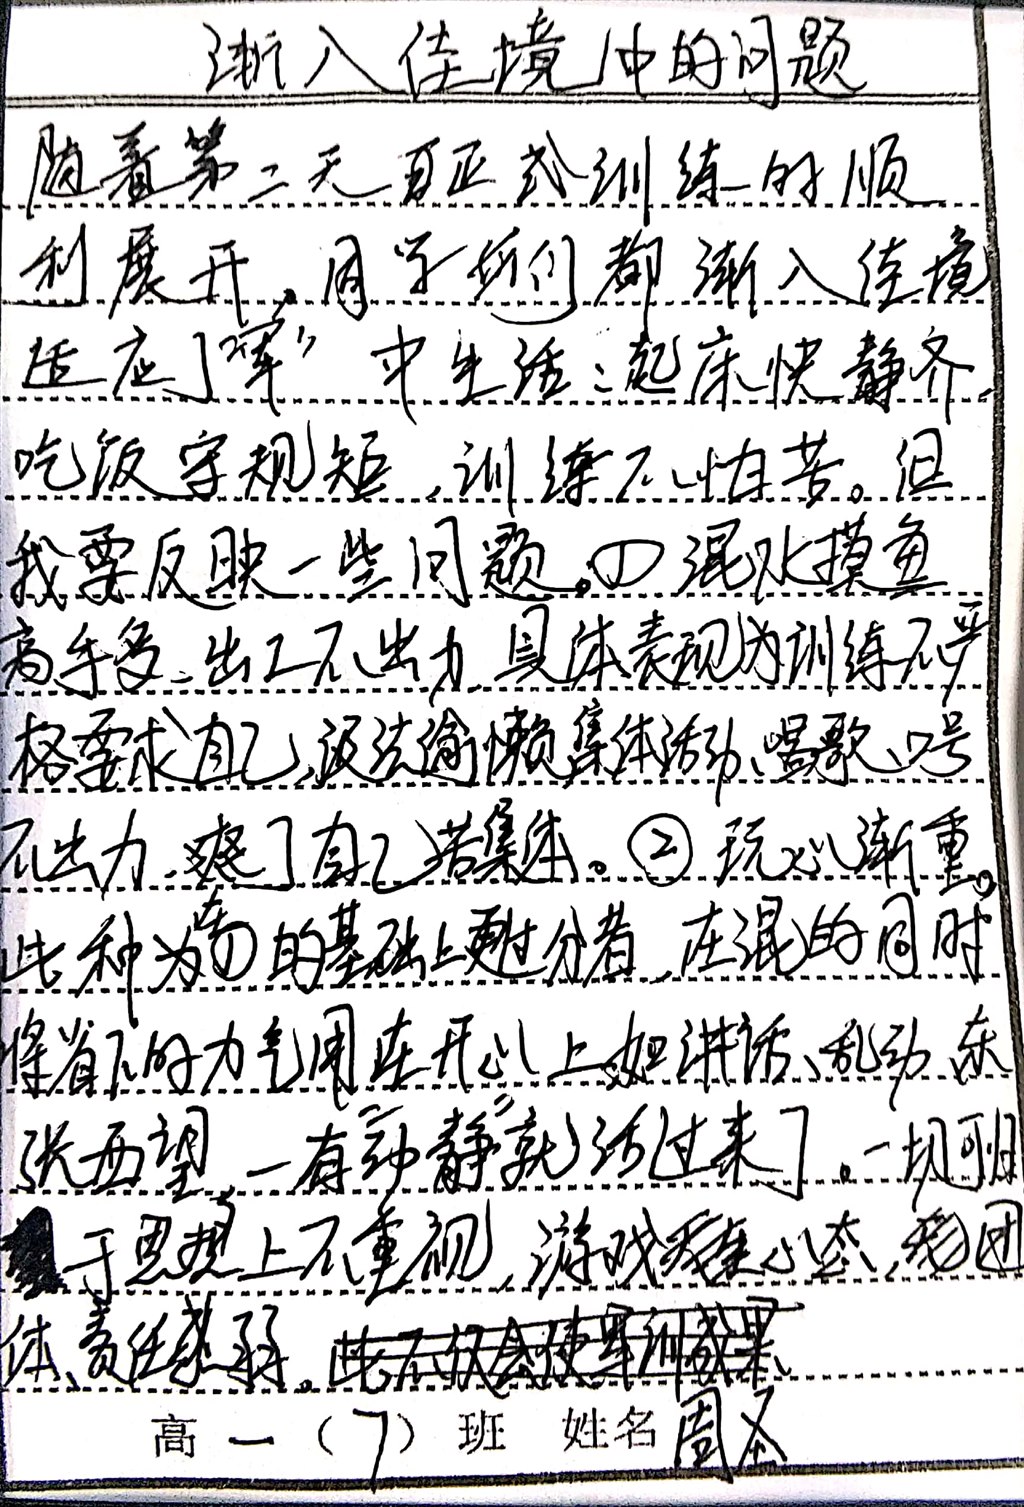 渐入佳境中的问题
随着第二天真正式训练的顺
利展开。同学们都渐入佳境
适应了“军”中生活：起床快静齐、
吃饭守规矩，训练不怕苦。但
我要反映一些问题。① 混水摸鱼
高手多、出工不出力，具体表现为训练不严
格要求自己，设法偷懒，集体活动、唱歌、口号
不出力、爽了自己苦集体。② 玩心渐重。
此种为在①的基础上更过分者，在混的同时
将省下的力气用在开心上，如讲话、乱动、东
张西望，一有“动静”就活过来了。一切可归
于思想上不重视，游戏心态，团
体、责任感弱。此不仅会使军训成果
高一（7）班 姓名 周圣